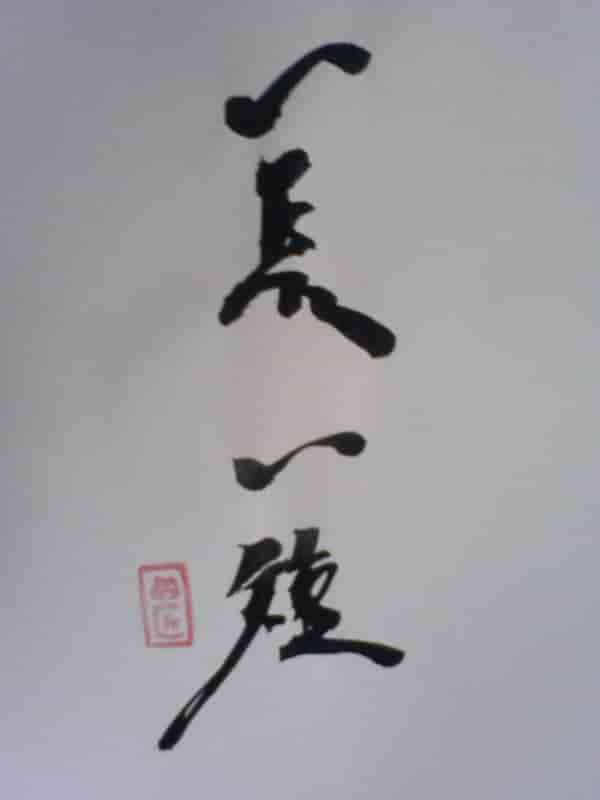 一長一短